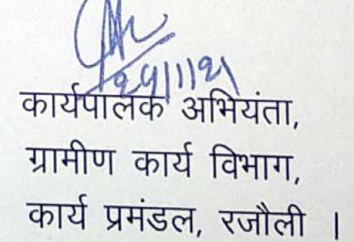 24/11/21
कार्यपालक अभियंता,
ग्रामीण कार्य विभाग,
कार्य प्रमंडल, रजौली ।